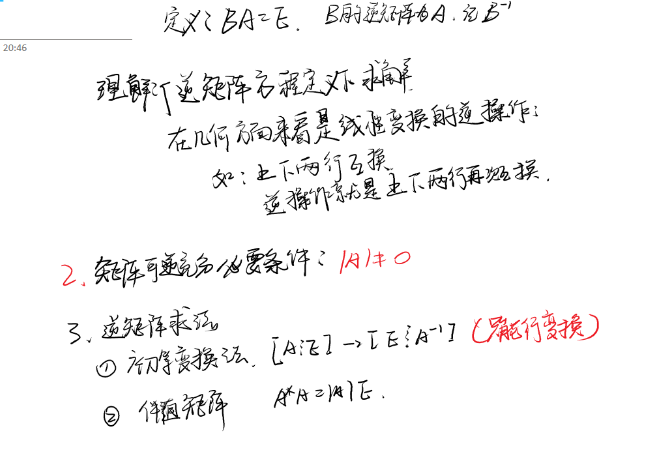 定义: BA=E. B的逆矩阵为A. 记B⁻¹
20:46
理解: 逆矩阵方程定义下求解
在几何方面来看是线性变换的逆操作:
如: 上下两行互换
逆操作就是上下两行再次互换.
2. 矩阵可逆充分必要条件: |A|≠0
3. 逆矩阵求法
① 初等变换法. [A⋮E]→[E⋮A⁻¹] (只能行变换)
② 伴随矩阵 A*A=|A|E.